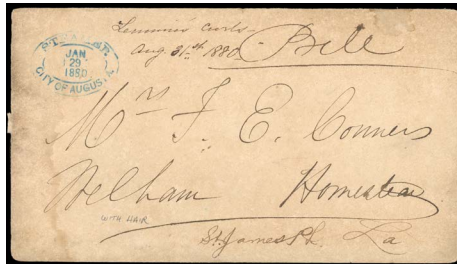 curls
Aug. 31st 1880
Bill
STEAMER
JAN
29
1880
CITY OF AUGUSTA
Mrs F. E. Conners
Welham Homestead
WITH HAIR
St. James Ph. La